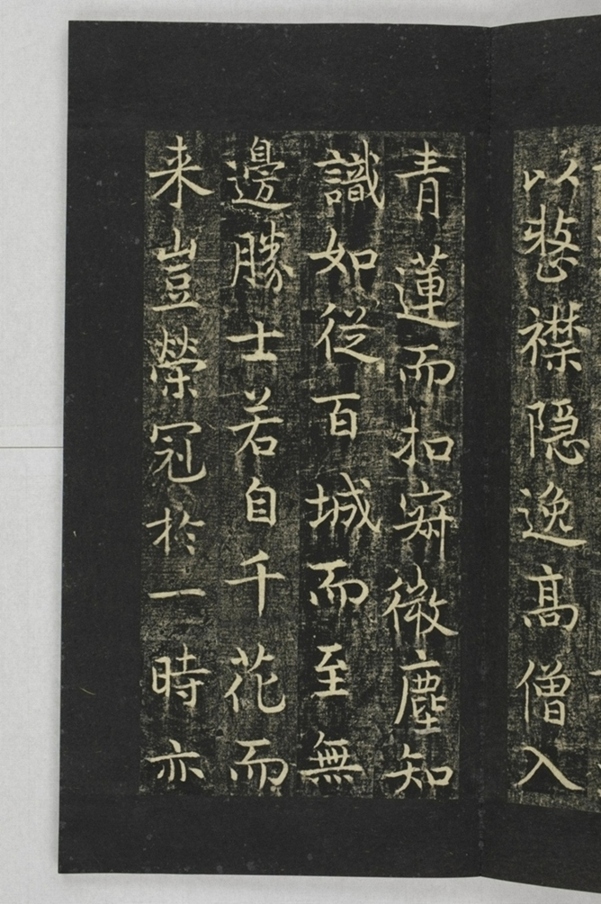 以襟隠逸高僧入
青蓮而扣寂微塵知
識如從百城而至無
邊勝士若自千花而
来豈榮冠於一時亦